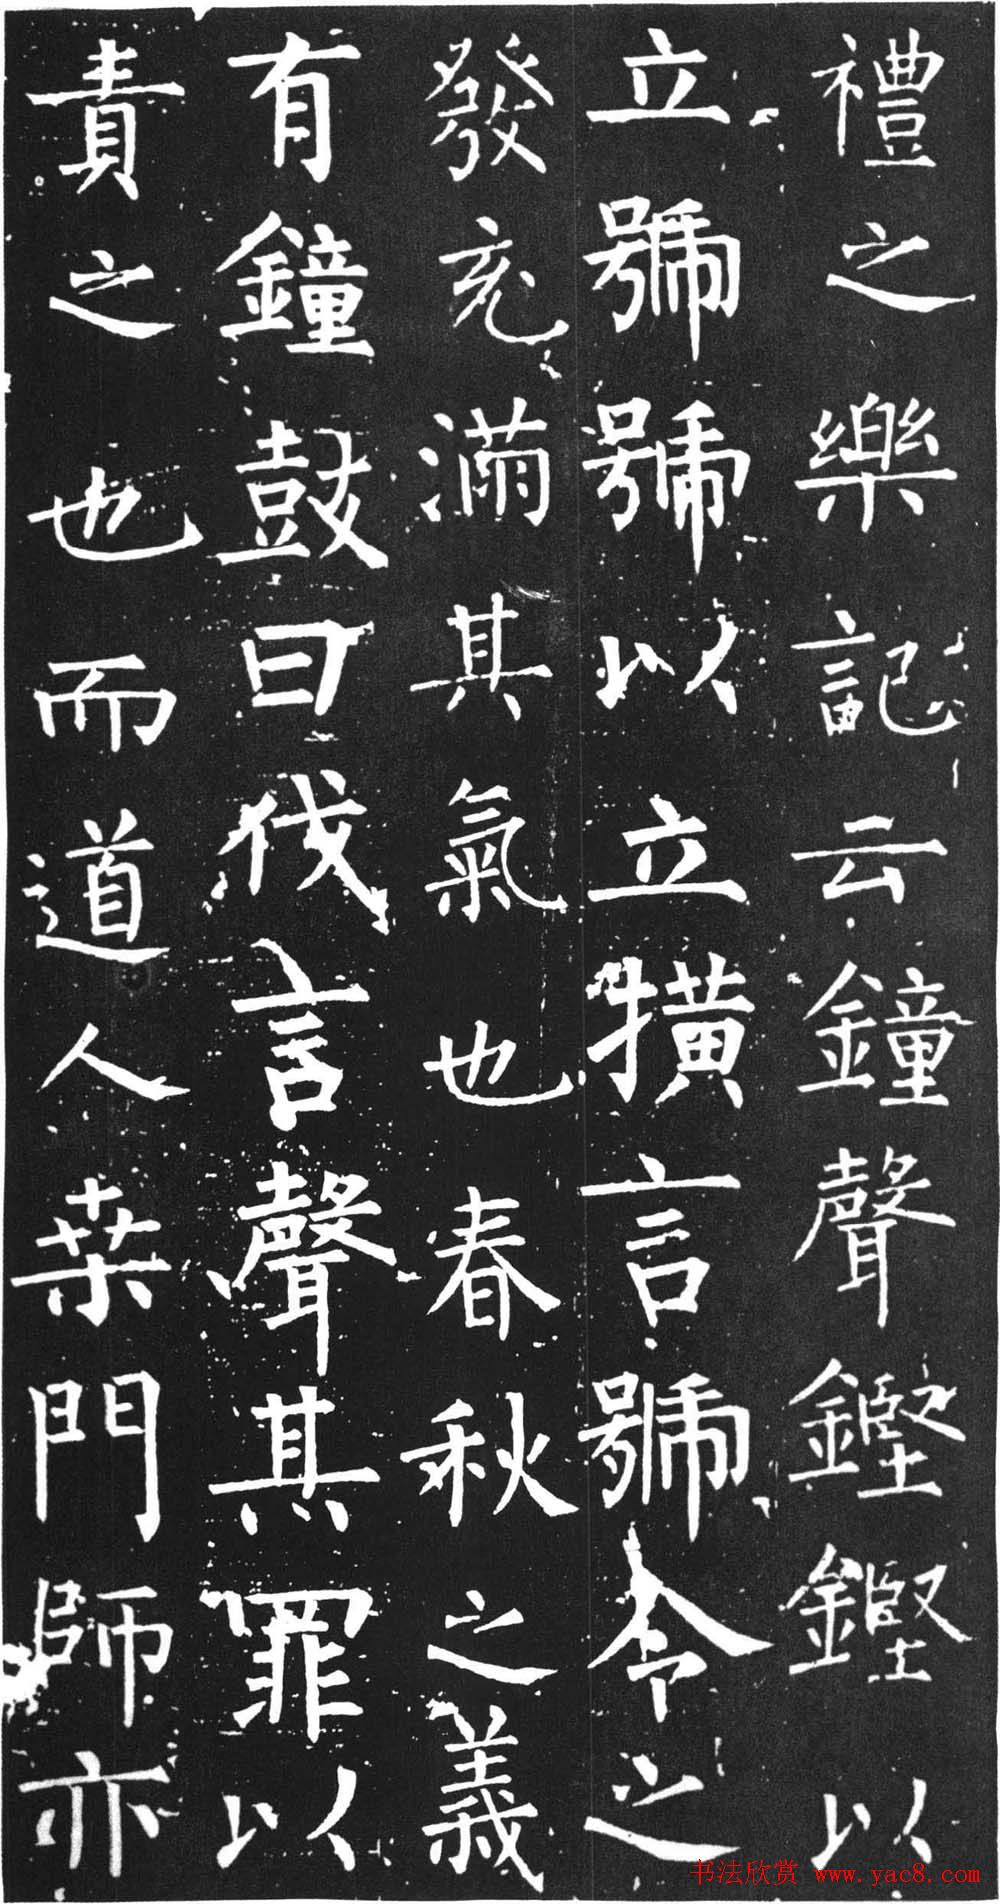 禮之樂記云鐘聲鏗鏗以
立號號以立撗言號令之
發充滿其氣也春秋之義
有鐘鼓曰伐言聲其罪以
責之也而道人桒門師亦
书法欣赏 www.yac8.com